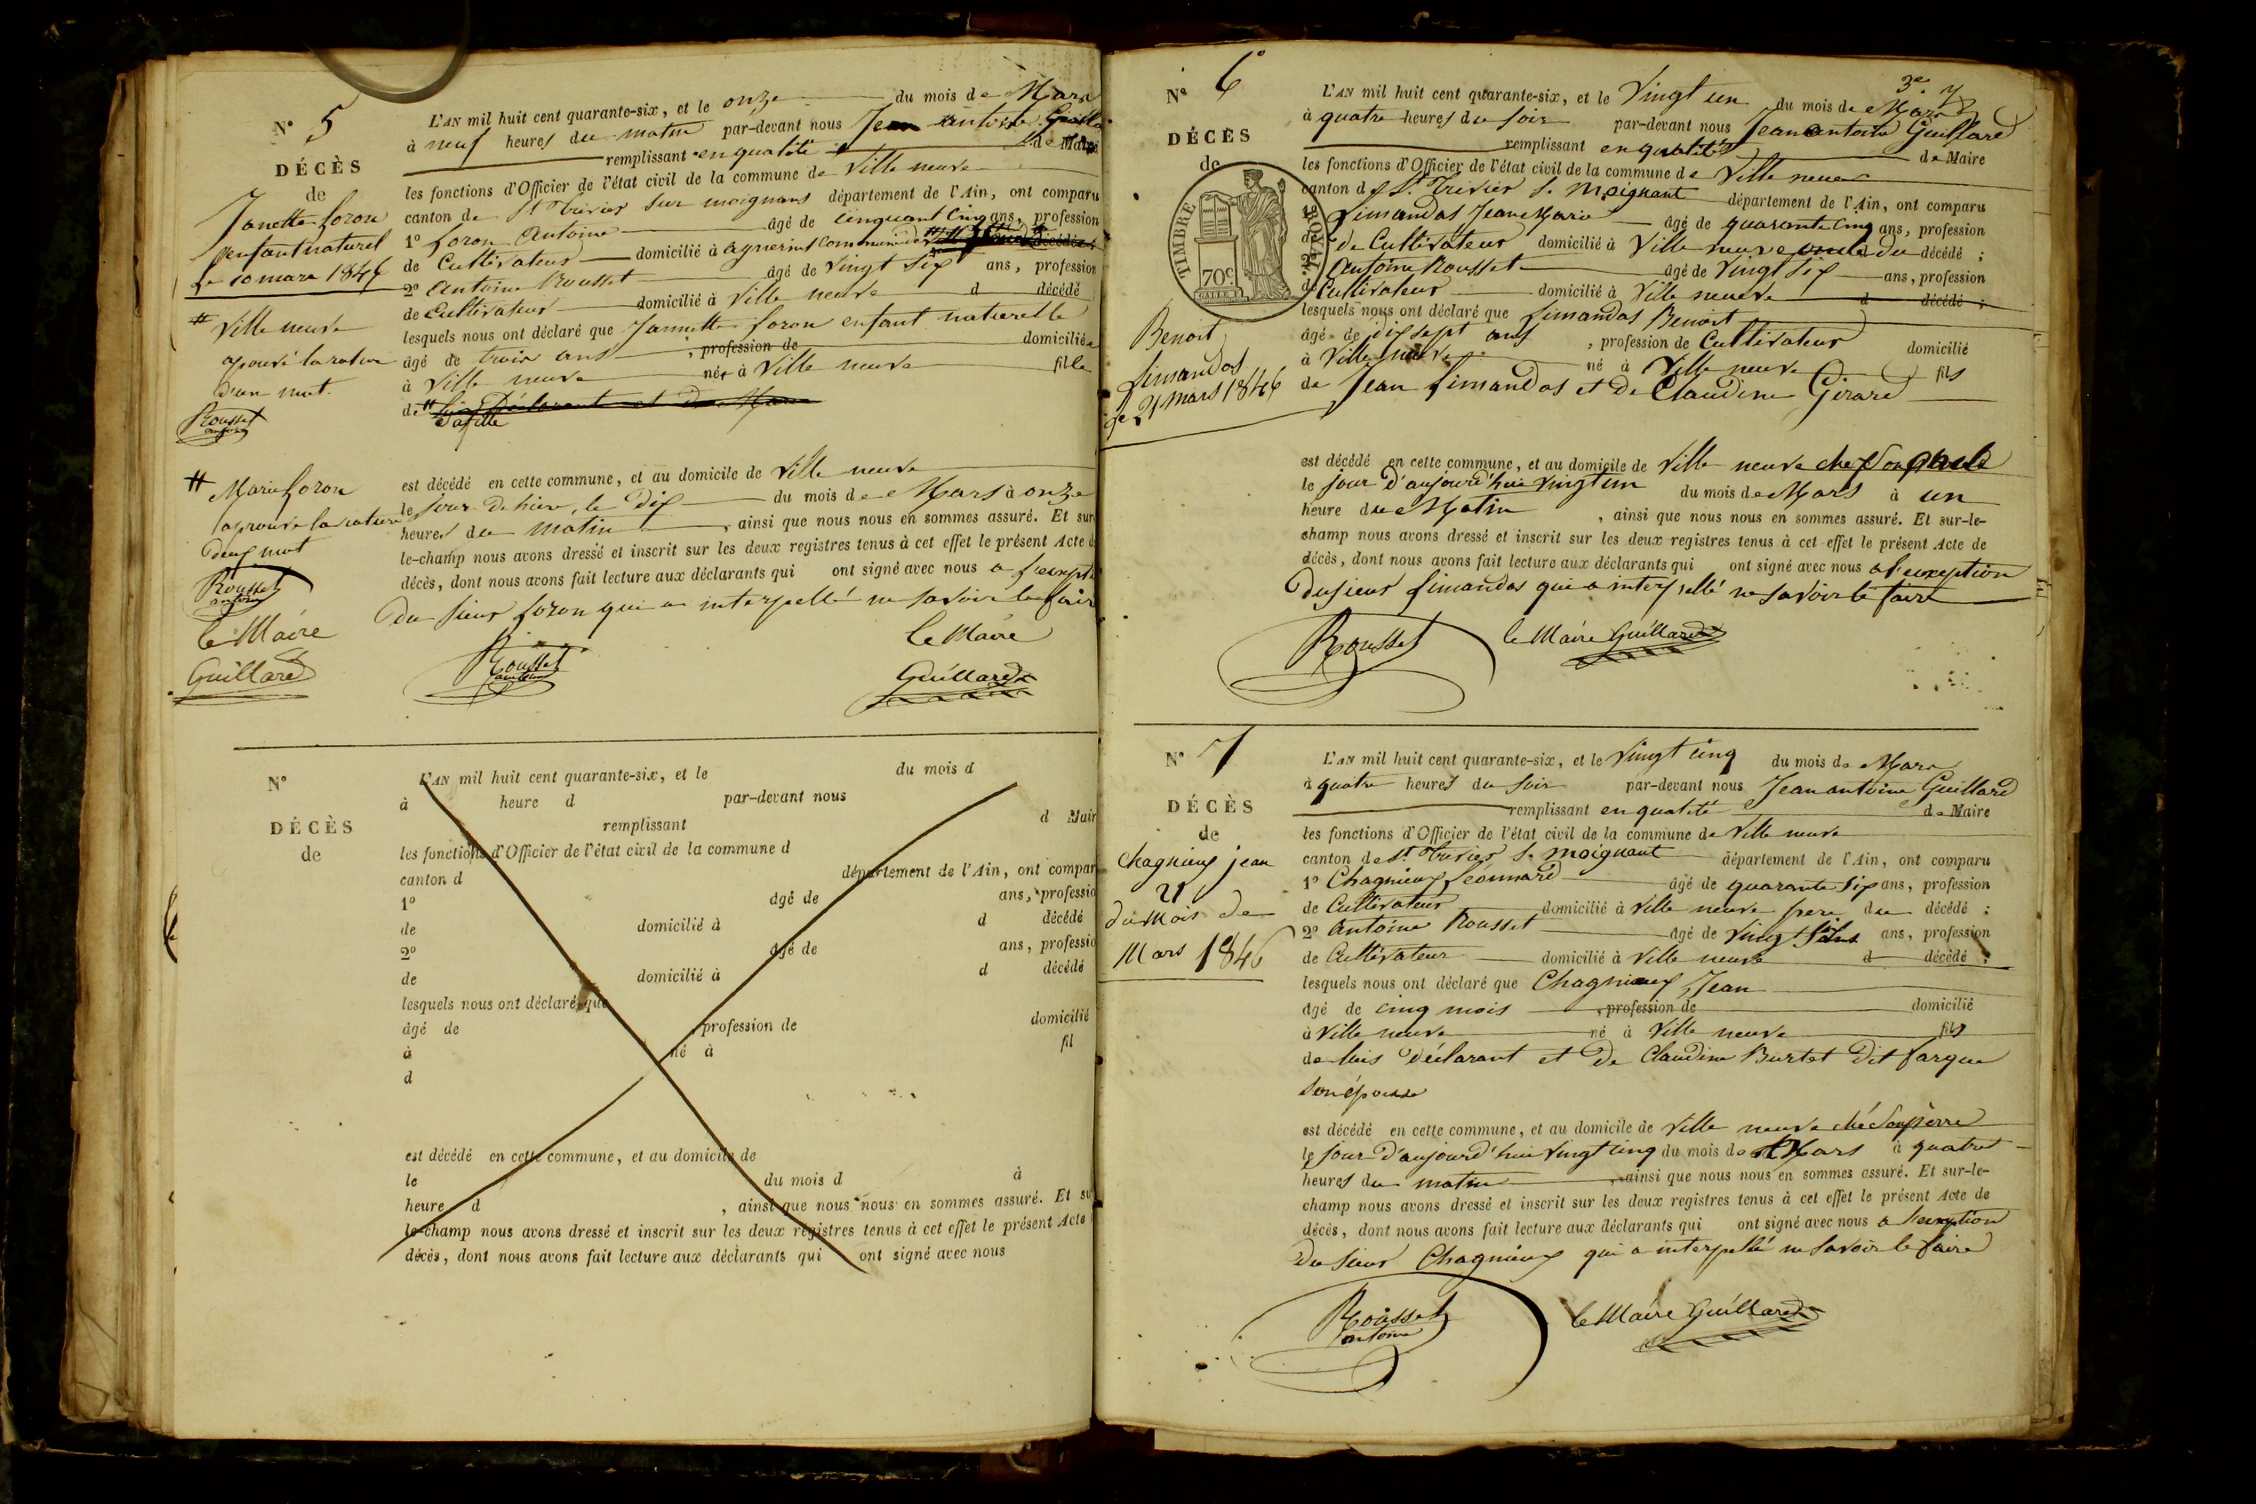 N° 5
DÉCÈS
de
Janette foron
enfant naturel
Le 10 mars 1846
# Ville neuve
aprouvé la rature
d'un mot.
Rousset
antoine
# Marie foron
aprouve la rature
deux mot
Rousset
antoine
le Maire
Guillard
L'AN mil huit cent quarante-six, et le onze du mois de Mars
à neuf heures du matin par-devant nous Jean antoine Guilla
remplissant en qualité de Maire
les fonctions d'Officier de l'état civil de la commune de Ville neuve
canton de St Trivier sur moignans département de l'Ain, ont comparu
1° foron Antoine âgé de cinquant cinq ans, profession
de Cultivateur domicilié à agnerins commune de # décédé
2° Antoine Rousset âgé de vingt six ans, profession
de Cultivateur domicilié à Ville neuve d décédé
lesquels nous ont déclaré que Jannette foron enfant naturelle
âgé de trois ans, profession de domiciliée
à Ville neuve née à Ville neuve fille
de # Lui Déclarant et de Marie
Sa fille
est décédé en cette commune, et au domicile de Ville neuve
le jour de hier, le Dix du mois de Mars à onze
heures du matin, ainsi que nous nous en sommes assuré. Et sur
le-champ nous avons dressé et inscrit sur les deux registres tenus à cet effet le présent Acte d
décès, dont nous avons fait lecture aux déclarants qui ont signé avec nous a l'excepti
Du sieur foron qui a interpellé ne savoir le faire
Rousset
antoine
le Maire
Guillard
N°
DÉCÈS
de
L'AN mil huit cent quarante-six, et le du mois d
à heure d par-devant nous
remplissant d Mair
les fonctions d'Officier de l'état civil de la commune d
canton d département de l'Ain, ont compar
1° âgé de ans, professio
de domicilié à d décédé
2° âgé de ans, professio
de domicilié à d décédé
lesquels nous ont déclaré que
âgé de, profession de domicilié
à né à fil
d
est décédé en cette commune, et au domicile de
le du mois d à
heure d, ainsi que nous nous en sommes assuré. Et su
le-champ nous avons dressé et inscrit sur les deux registres tenus à cet effet le présent Acte
décès, dont nous avons fait lecture aux déclarants qui ont signé avec nous
3e
N° 6
DÉCÈS
de
TIMBRE ROYAL
70c
Benoit
Limandas
Le 21 mars 1846
L'AN mil huit cent quarante-six, et le Vingt un du mois de Mars
à quatre heures du soir par-devant nous Jean antoine Guillard
remplissant en qualité de Maire
les fonctions d'Officier de l'état civil de la commune de Ville neuve
canton de St Trivier S. Moignant département de l'Ain, ont comparu
1° Limandas Jean Marie âgé de quarante cinq ans, profession
de Cultivateur domicilié à Ville neuve oncle du décédé ;
2° Antoine Rousset âgé de Vingt six ans, profession
de Cultivateur domicilié à Ville neuve d décédé ;
lesquels nous ont déclaré que Limandas Benoit
âgé de dix sept ans, profession de Cultivateur domicilié
à Ville neuve né à Ville neuve fils
de Jean Limandas et De Claudine Girard
est décédé en cette commune, et au domicile de Ville neuve chez son oncle
le jour D'aujourd'hui vingt un du mois de Mars à un
heure du Matin, ainsi que nous nous en sommes assuré. Et sur-le-
champ nous avons dressé et inscrit sur les deux registres tenus à cet effet le présent Acte de
décès, dont nous avons fait lecture aux déclarants qui ont signé avec nous a l'exception
Du sieur Limandas qui a interpellé ne savoir le faire
Rousset
le Maire Guillard
N° 7
DÉCÈS
de
Chagnieux jean
25
du Mois de
Mars 1846
L'AN mil huit cent quarante-six, et le Vingt cinq du mois de Mars
à quatre heures du soir par-devant nous Jean antoine Guillard
remplissant en qualité de Maire
les fonctions d'Officier de l'état civil de la commune de Ville neuve
canton de St Trivier S. Moignant département de l'Ain, ont comparu
1° Chagnieux Léonnard âgé de quarante six ans, profession
de Cultivateur domicilié à Ville neuve père du décédé ;
2° Antoine Rousset âgé de vingt six ans, profession
de Cultivateur domicilié à Ville neuve d décédé ;
lesquels nous ont déclaré que Chagnieux Jean
âgé de cinq mois, profession de domicilié
à Ville neuve né à Ville neuve fils
de luis Déclarant et De Claudine Burtet Dit fargue
son épouse
est décédé en cette commune, et au domicile de Ville neuve ché son père
le jour D'aujourd'hui vingt cinq du mois de Mars à quatre
heures du matin, ainsi que nous nous en sommes assuré. Et sur-le-
champ nous avons dressé et inscrit sur les deux registres tenus à cet effet le présent Acte de
décès, dont nous avons fait lecture aux déclarants qui ont signé avec nous a l'exception
Du sieur Chagnieux qui a interpellé ne savoir le faire
Rousset
antoine
le Maire Guillard